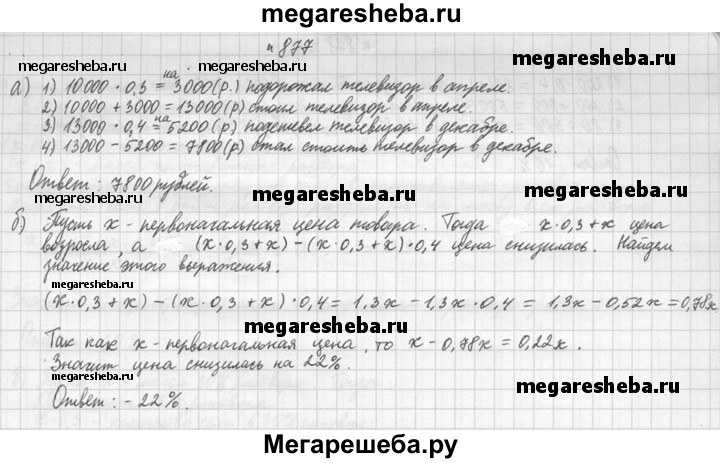 megaresheba.ru
№ 877
megaresheba.ru
megaresheba.ru
а) 1) 10000 · 0,3 = на 3000 (р.) подорожал телевизор в апреле.
2) 10000 + 3000 = 13000 (р) стоил телевизор в апреле.
3) 13000 · 0,4 = на 5200 (р) подешевел телевизор в декабре.
4) 13000 - 5200 = 7800 (р) стал стоить телевизор в декабре.
Ответ: 7800 рублей.
megaresheba.ru
megaresheba.ru
megaresheba.ru
б) Пусть x - первоначальная цена товара. Тогда x · 0,3 + x цена
возросла, а (x · 0,3 + x) - (x · 0,3 + x) · 0,4 цена снизилась. Найдем
значение этого выражения.
megaresheba.ru
megaresheba.ru
(x · 0,3 + x) - (x · 0,3 + x) · 0,4 = 1,3x - 1,3x · 0,4 = 1,3x - 0,52x = 0,78x
Так как x - первоначальная цена, то x - 0,78x = 0,22x.
Значит цена снизилась на 22%.
megaresheba.ru
megaresheba.ru
Ответ: - 22%.
Мегарешеба.ру